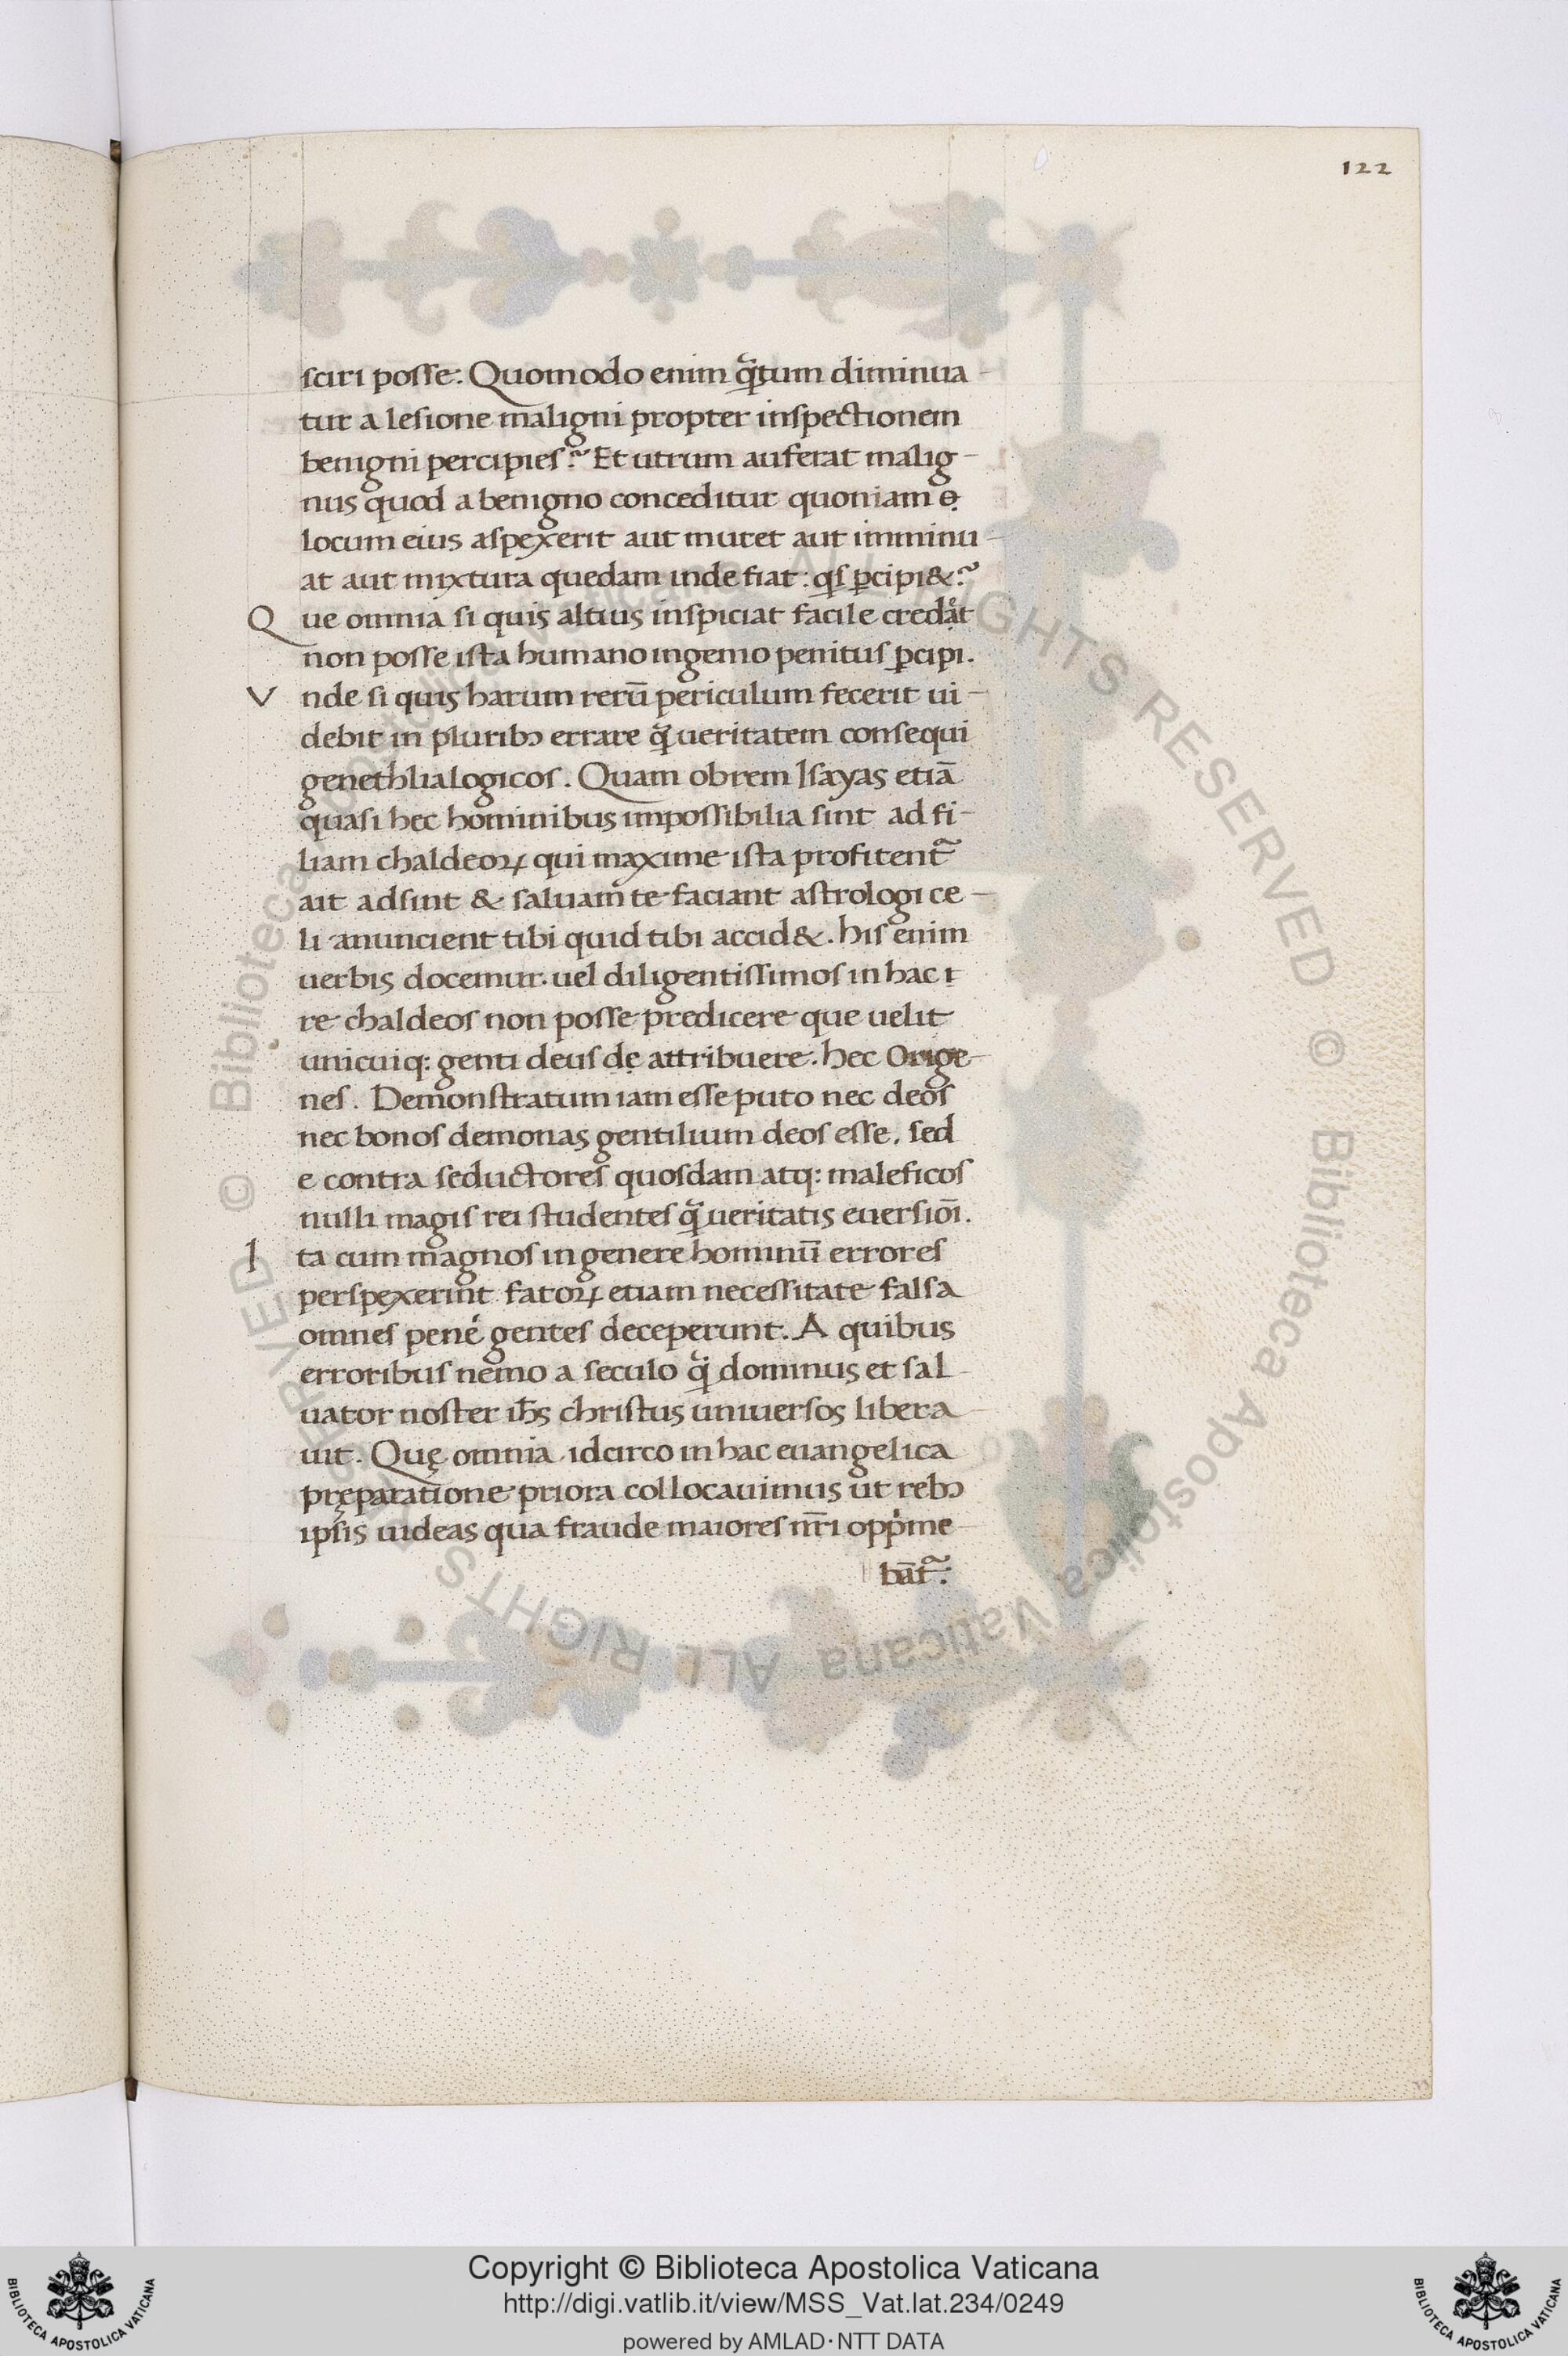 122
sciri posse: Quomodo enim q̃tum diminua-
tur a lesione maligni propter inspectionem
benigni percipies? Et utrum auferat malig-
nus quod a benigno conceditur quoniam
locum eius aspexerit aut mutet aut imminu-
at aut mixtura quedam inde fiat: qs ꝑcipi&?
Que omnia si quis altius inspiciat facile credat
non posse ista humano ingenio penitus ꝑcipi.
Vnde si quis harum rerū periculum fecerit ui-
debit in pluribꝰ errare q̃ ueritatem consequi
genethlialogicos. Quam obrem Isayas etiā
quasi hec hominibus impossibilia sint ad fi-
liam chaldeoꝝ qui maxime ista profitent̃
ait adsint & saluam te faciant astrologi ce-
li anuncient tibi quid tibi accid&. his enim
uerbis docemur. uel diligentissimos in hac r
re chaldeos non posse predicere que uelit
unicuiq: genti deus de attribuere. hec Orige-
nes. Demonstratum iam esse puto nec deos
nec bonos demonas gentilium deos esse, sed
e contra seductores quosdam atq: maleficos
nulli magis rei studentes q̃ ueritatis euersiōi.
Ita cum magnos in genere hominū errores
perspexerint fatoꝝ etiam necessitate falsa
omnes pené gentes deceperunt. A quibus
erroribus nemo a seculo q̃ dominus et sal-
uator noster ih̄s christus uniuersos libera-
uit. Quę omnia idcirco in hac euangelica
pręparatione priora collocauimus ut rebꝰ
ipsis uideas qua fraude maiores nr̄i opp̍me-
bāt̃.
© Biblioteca Apostolica Vaticana ALL RIGHTS RESERVED © Biblioteca Apostolica Vaticana ALL RIGHTS RESERVED
Copyright © Biblioteca Apostolica Vaticana
http://digi.vatlib.it/view/MSS_Vat.lat.234/0249
powered by AMLAD·NTT DATA
BIBLIOTECA APOSTOLICA VATICANA
BIBLIOTECA APOSTOLICA VATICANA